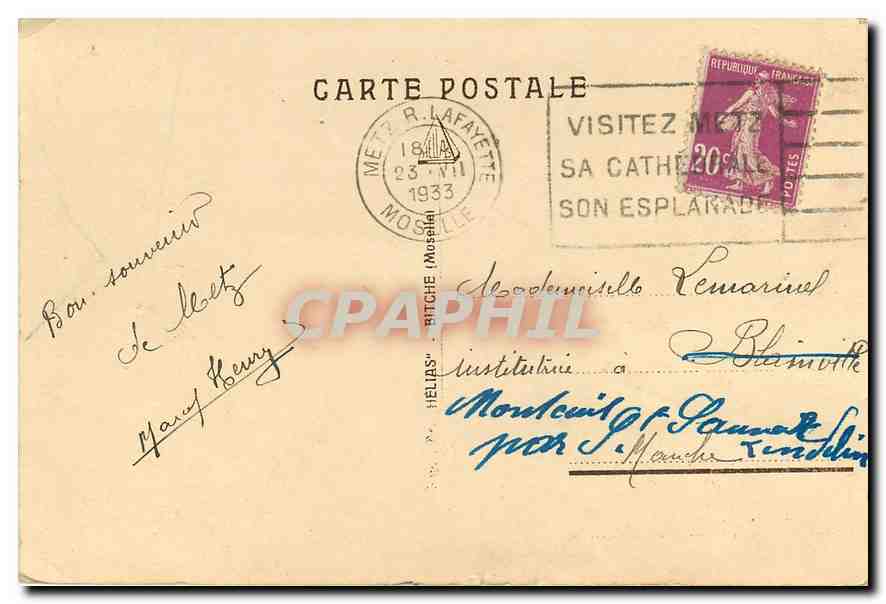 CARTE POSTALE
METZ R. LAFAYETTE
18
23 VII
1933
MOSELLE
VISITEZ METZ
SA CATHEDRALE
SON ESPLANADE
REPUBLIQUE FRANÇAISE
20c
POSTES
Bon souvenir
de Metz
Marcf Henry
HELIAS" - BITCHE (Moselle)
CPAPHIL
Mademoiselle Lemarinel
institutrice à Blainville
Monteuil St Sauveur
par St. Lendelin
Manche